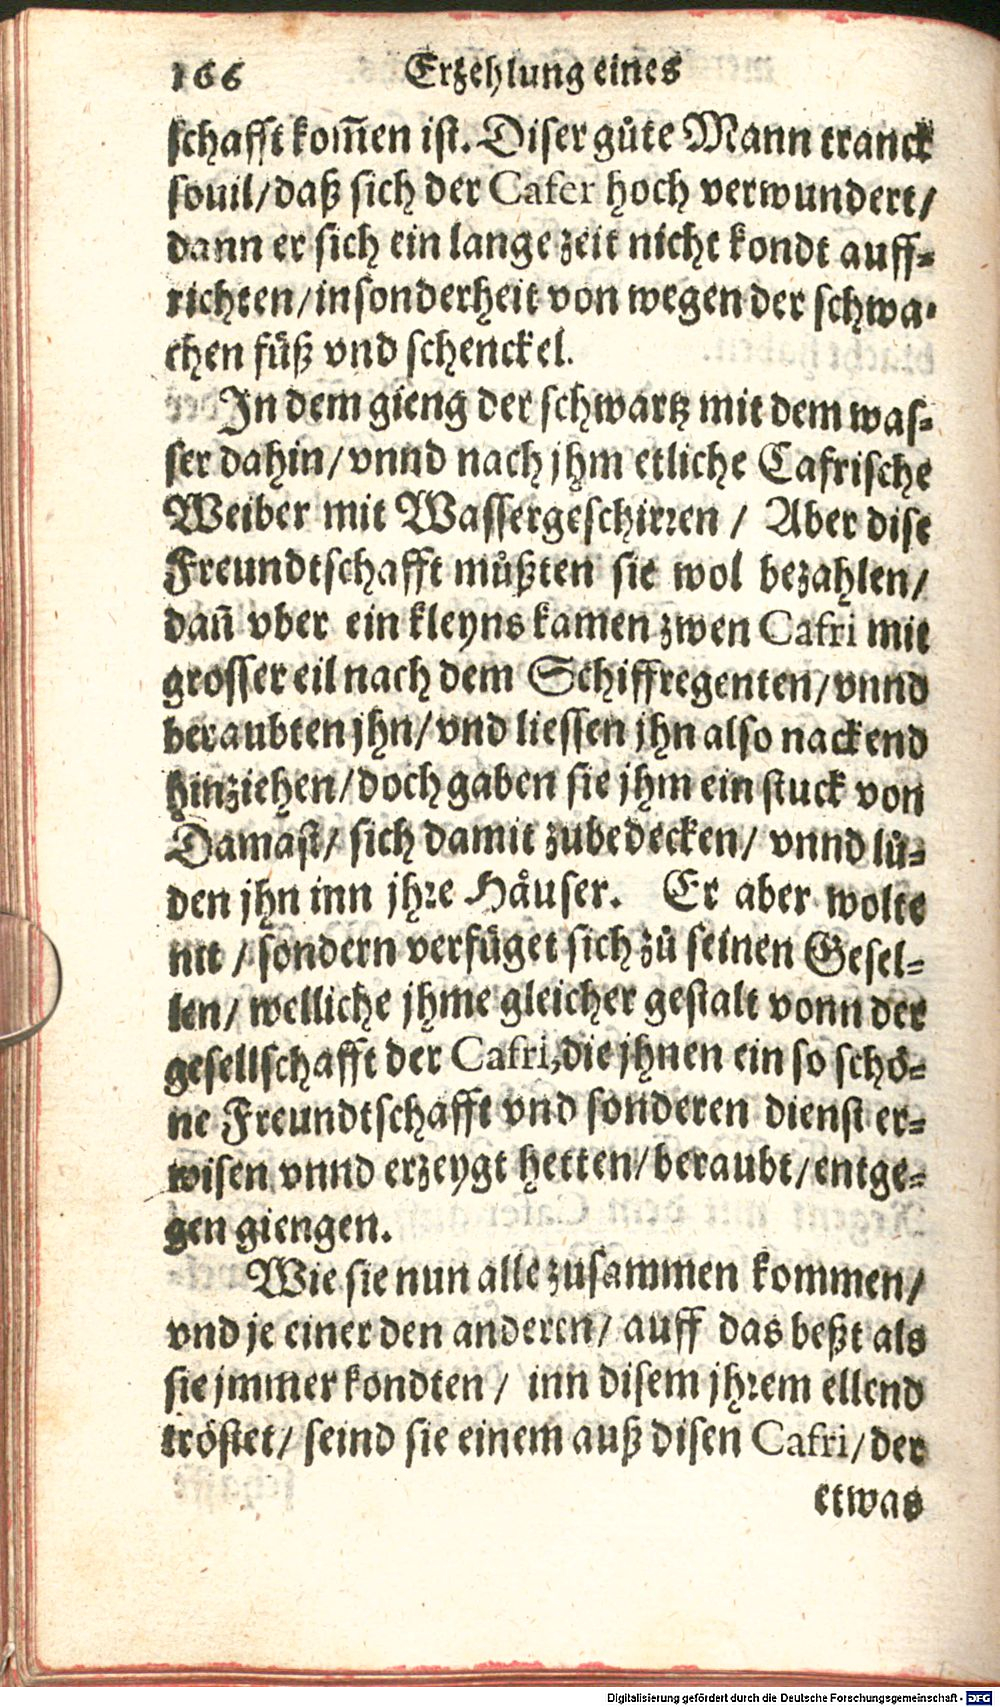 166 Erzehlung eines
schafft kom̃en ist. Diser gůte Mann tranck
souil/daß sich der Cafer hoch verwundert/
dann er sich ein lange zeit nicht kondt auff-
richten/insonderheit von wegen der schwa-
chen füß vnd schenckel.
In dem gieng der schwartz mit dem was-
ser dahin/vnnd nach jhm etliche Cafrische
Weiber mit Wassergeschirren / Aber dise
Freundtschafft můßten sie wol bezahlen/
dañ vber ein kleyns kamen zwen Cafri mit
grosser eil nach dem Schiffregenten/vnnd
beraubten jhn/vnd liessen jhn also nackend
hinziehen/doch gaben sie jhm ein stuck von
Damast/ sich damit zubedecken/ vnnd lů-
den jhn inn jhre Häuser. Er aber wolte
nit / sondern verfüget sich zů seinen Gesel-
len/ welliche jhme gleicher gestalt vonn der
gesellschafft der Cafri,die jhnen ein so schö-
ne Freundtschafft vnd sonderen dienst er-
wisen vnnd erzeygt hetten/beraubt/entge-
gen giengen.
Wie sie nun alle zusammen kommen/
vnd je einer den anderen/ auff das beßt als
sie jmmer kondten / inn disem jhrem ellend
tröstet/ seind sie einem auß disen Cafri/der
etwas
Digitalisierung gefördert durch die Deutsche Forschungsgemeinschaft - DFG